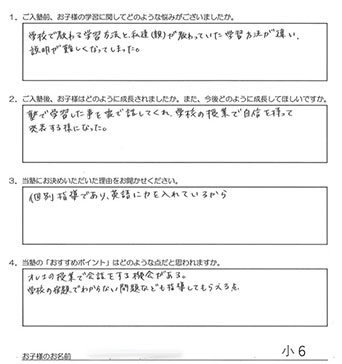 1. ご入塾前、お子様の学習に関してどのような悩みがございましたか。
学校で教わる学習方法と、私達(親)が教わっていた学習方法が違い、
説明が難しくなってしまった。
2. ご入塾後、お子様はどのように成長されましたか。また、今後どのように成長してほしいですか。
塾で学習した事を家で話してくれ、学校の授業で自信を持って
発表する様になった。
3. 当塾にお決めいただいた理由をお聞かせください。
個別指導であり、英語に力を入れているから
4. 当塾の「おすすめポイント」はどのような点だと思われますか。
オレコの授業で会話をする機会がある。
学校の宿題でわからない問題なども指導してもらえる点
お子様のお名前
小6